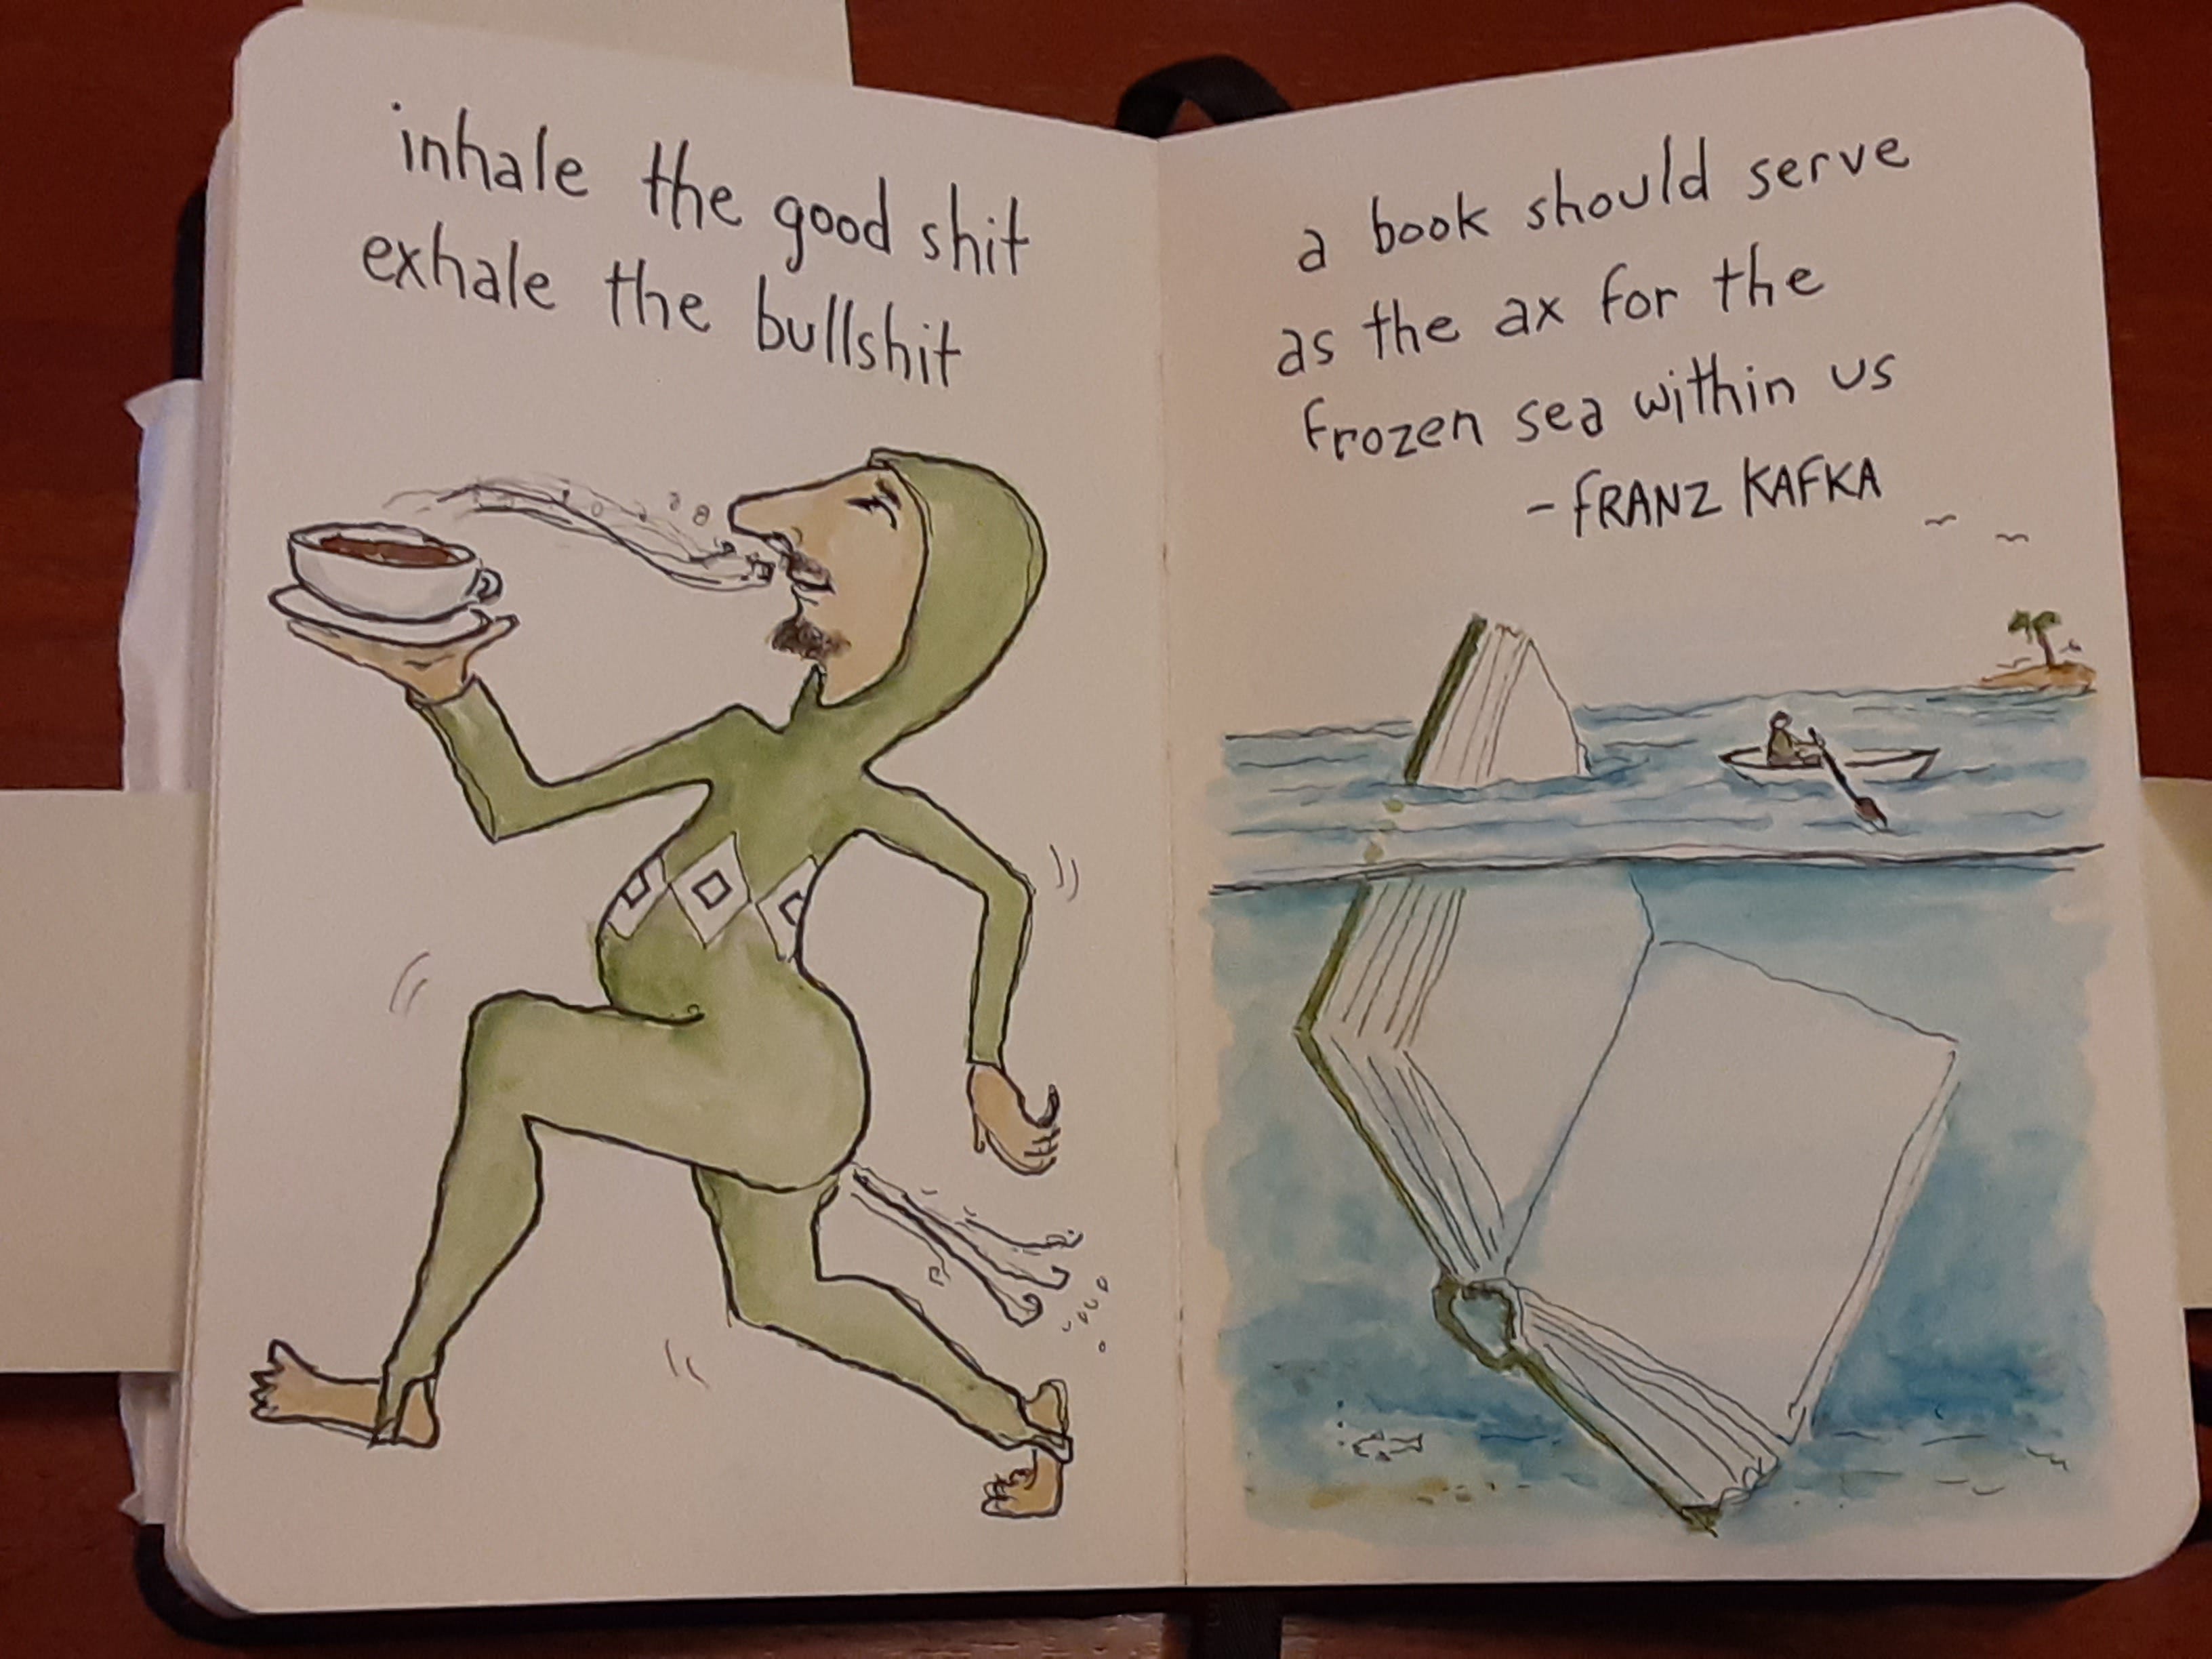 inhale the good shit
exhale the bullshit
a book should serve
as the ax for the
frozen sea within us
- FRANZ KAFKA